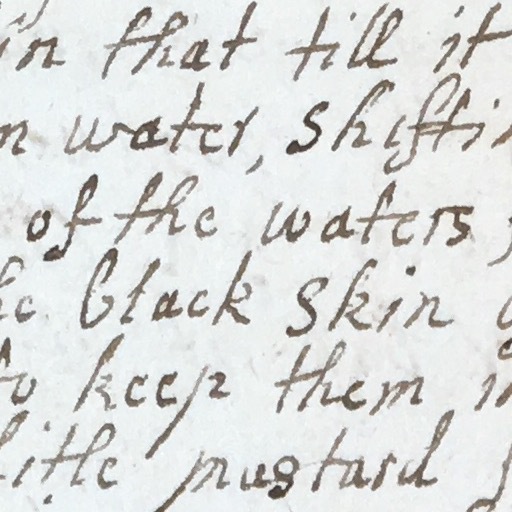 in that till it
water, shifti
of the waters
he black skin
to keep them i
litle mustard